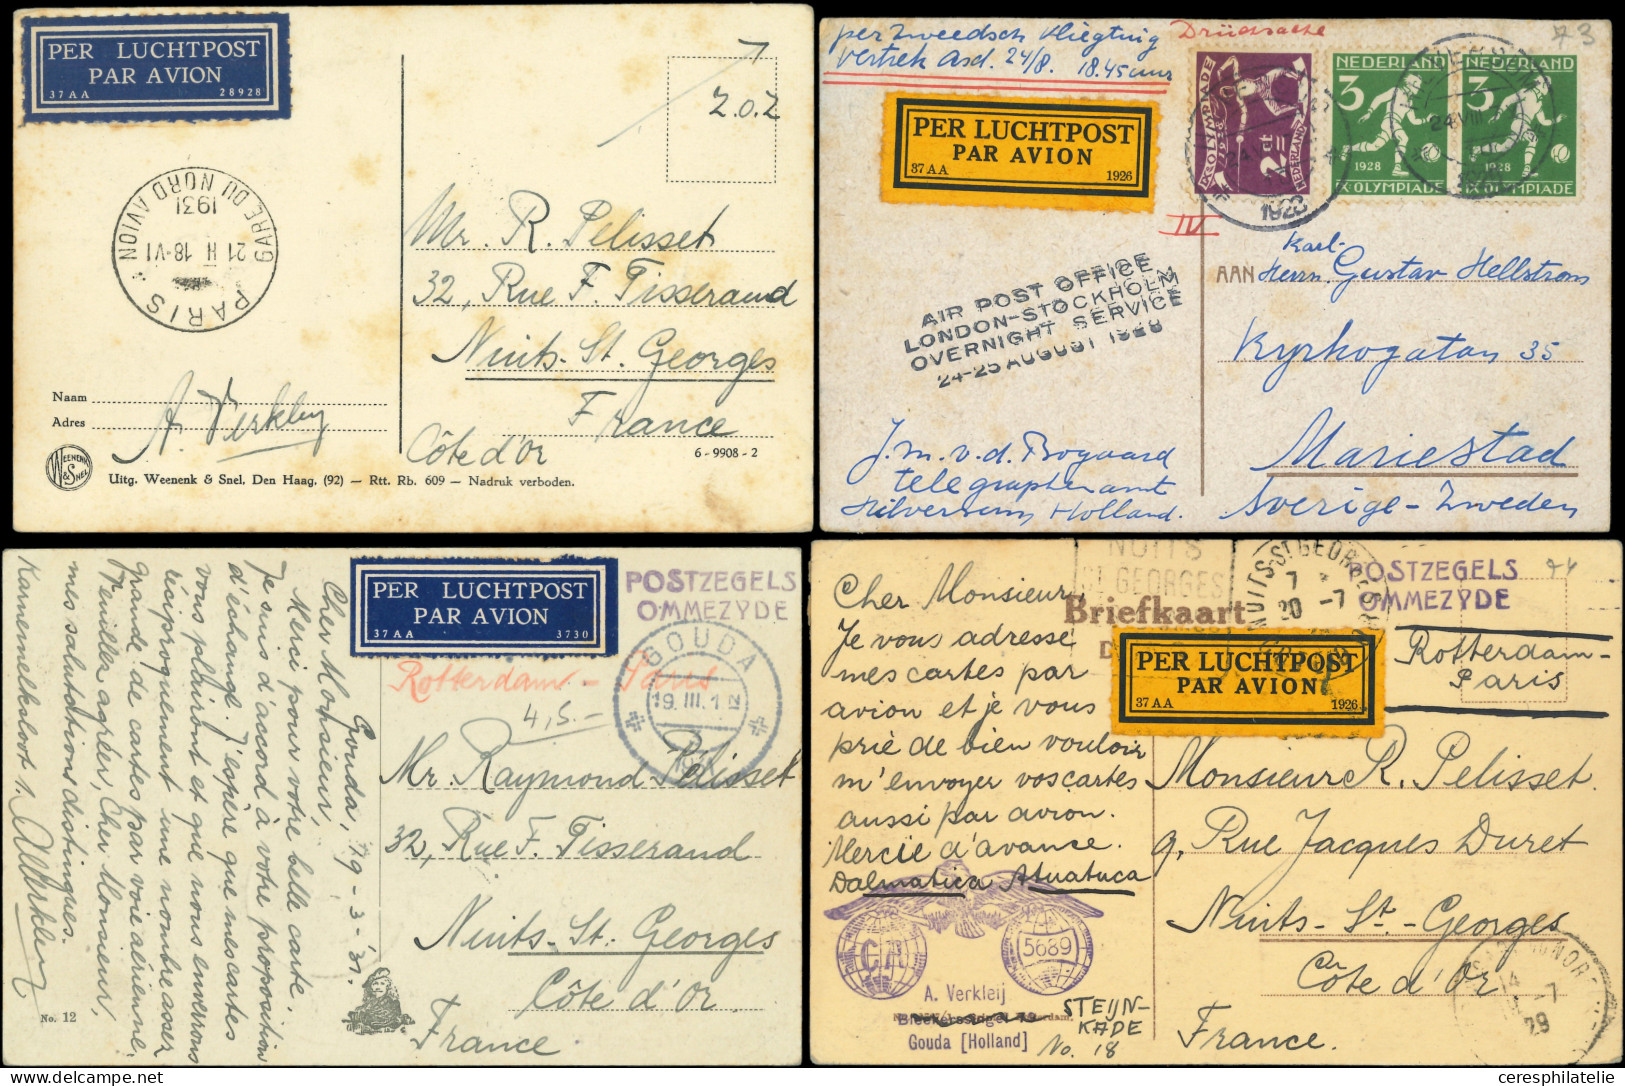 PER LUCHTPOST
PAR AVION
37 A A 28928
Z.O.Z
GARE DU NORD AVION
1931
21 II 18-VI
PARIS
Mr. R. Pelisset
32, Rue F. Tisserand
Nuits-St. Georges
France
Côte d'or
Naam
Adres
A. Verkley
6-9908-2
WEENENK & SNEL
Uitg. Weenenk & Snel, Den Haag. (92) — Rtt. Rb. 609 — Nadruk verboden.
per Zweedsch vliegtuig
vertrek Asd. 24/8. 18.45 uur
Drucksache
73
PER LUCHTPOST
PAR AVION
37 A A 1926
IXE OLYMPIADE
1928
2 ct
NEDERLAND
NEDERLAND
3
1928
IXE OLYMPIADE
NEDERLAND
3
1928
IXE OLYMPIADE
24 VIII
1928
IV
AIR POST OFFICE
LONDON-STOCKHOLM
OVERNIGHT SERVICE
24-25 AUGUST 1928
Karl-
AAN Herrn. Gustav Hellström
Kyrkogatan 35
Mariestad
Sverige - Zweden
J. m. v. d. Bogaard
telegraphenamt
Hilversum Holland.
PER LUCHTPOST
PAR AVION
37 A A 3730
POSTZEGELS
OMMEZYDE
GOUDA
19. III. 1
Rotterdam - Paris
4,5.-
Gouda, 19-3-'31.
Cher Monsieur,
Merci pour votre belle carte.
Je suis d'accord à votre proposition
d'échange. J'espère que mes cartes
vous plairont et que nous enverrons
réciproquement une nombre assez
grande de cartes par voie aérienne.
Veuillez agréer, Cher Monsieur,
mes salutations distingues.
Karnemelksloot 1.
A Verkley
Mr. Raymond Pelisset
32, Rue F. Tisserand
Nuits-St. Georges
Côte d'or
France
No. 12
NUITS
ST GEORGES
NUITS-ST GEORGES
7
20-7
POSTZEGELS
OMMEZYDE
74
Briefkaart
PER LUCHTPOST
PAR AVION
37 A A 1926
Rotterdam-
Paris
Cher Monsieur,
Je vous adresse
mes cartes par
avion et je vous
prie de bien vouloir
m'envoyer vos cartes
aussi par avion.
Mercie d'avance.
Dalmatica Atuatuca
Monsieur R. Pelisset.
9, Rue Jacques Duret
Nuits-St-Georges
Côte d'Or
France.
CR
5689
A. Verkleij
Bleekerssingel 79
Gouda [Holland]
STEIJN-
KADE
No. 18
14-7
29
ceresphilatelie